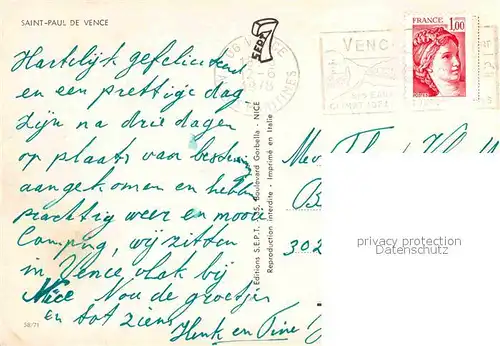 SAINT-PAUL DE VENCE
Hartelijk gefeliciteerd
en een prettige dag
zijn na drie dagen
op plaats van bestem
aangekomen en hebben
prachtig weer en mooie
Camping, wij zitten
in Vence vlak bij
Nice Nou de groetjes
en tot ziens
Henk en Tine
58/71
Editions S.E.P.T. Boulevard Gorbella - NICE
Reproduction interdite - Imprimé en Italie
SEPT
06 VENCE
1978
VENC
FRANCE
1,00
Mev
302
privacy protection
Datenschutz